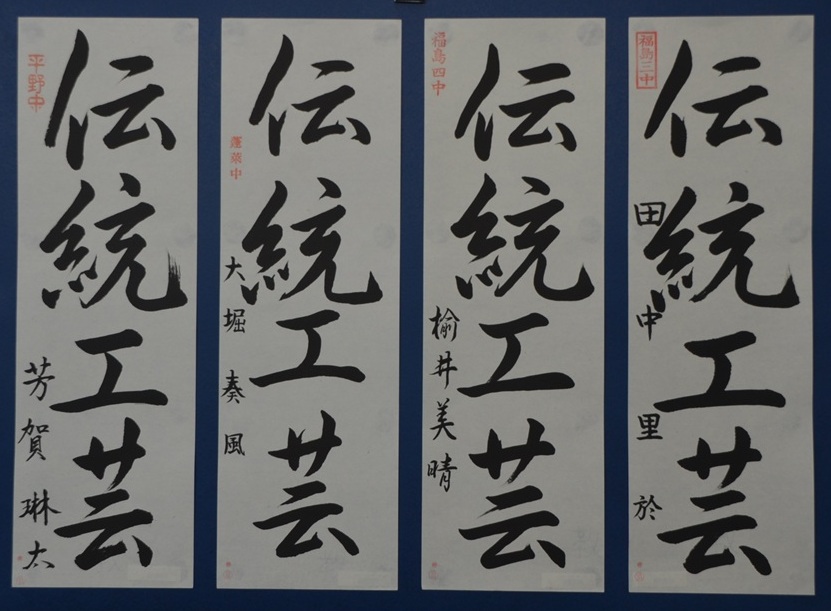 福島三中
伝統工芸
田中里於
福島四中
伝統工芸
榆井美晴
蓬莱中
伝統工芸
大堀奏風
平野中
伝統工芸
芳賀琳太